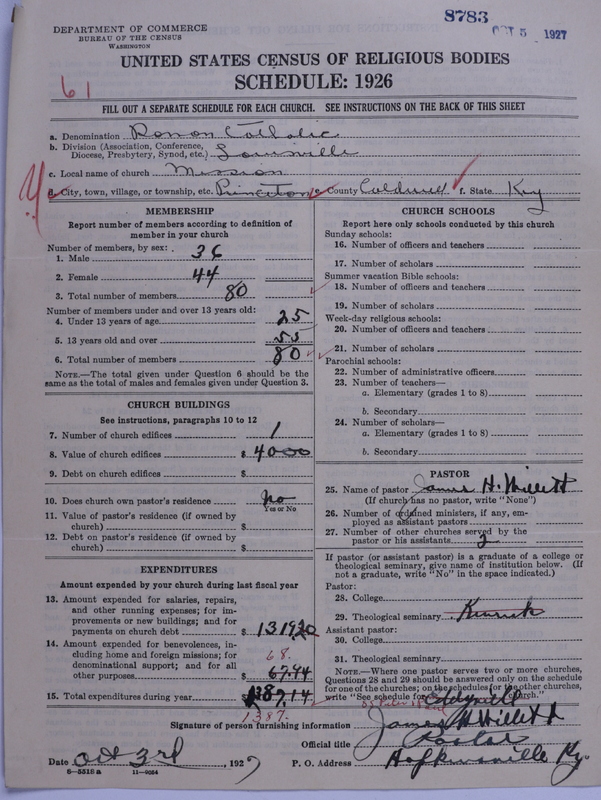 8783
OCT 5 1927
DEPARTMENT OF COMMERCE
BUREAU OF THE CENSUS
WASHINGTON
UNITED STATES CENSUS OF RELIGIOUS BODIES
SCHEDULE: 1926
61
FILL OUT A SEPARATE SCHEDULE FOR EACH CHURCH. SEE INSTRUCTIONS ON THE BACK OF THIS SHEET
a. Denomination Roman Catholic
b. Division (Association, Conference, Diocese, Presbytery, Synod, etc.) Louisville
c. Local name of church Mission
d. City, town, village, or township, etc. Princeton e. County Caldwell f. State Key
MEMBERSHIP
Report number of members according to definition of member in your church
Number of members, by sex:
1. Male 36
2. Female 44
3. Total number of members 80
Number of members under and over 13 years old:
4. Under 13 years of age 25
5. 13 years old and over 55
6. Total number of members 80
NOTE.—The total given under Question 6 should be the same as the total of males and females given under Question 3.
CHURCH BUILDINGS
See instructions, paragraphs 10 to 12
7. Number of church edifices 1
8. Value of church edifices $ 4000
9. Debt on church edifices $
10. Does church own pastor's residence No
Yes or No
11. Value of pastor's residence (if owned by church) $
12. Debt on pastor's residence (if owned by church) $
EXPENDITURES
Amount expended by your church during last fiscal year
13. Amount expended for salaries, repairs, and other running expenses; for improvements or new buildings; and for payments on church debt $ 1319 20
14. Amount expended for benevolences, including home and foreign missions; for denominational support; and for all other purposes $ 67.94
68.
15. Total expenditures during year $ 1387.14
1387.
CHURCH SCHOOLS
Report here only schools conducted by this church
Sunday schools:
16. Number of officers and teachers
17. Number of scholars
Summer vacation Bible schools:
18. Number of officers and teachers
19. Number of scholars
Week-day religious schools:
20. Number of officers and teachers
21. Number of scholars
Parochial schools:
22. Number of administrative officers
23. Number of teachers—
a. Elementary (grades 1 to 8)
b. Secondary
24. Number of scholars—
a. Elementary (grades 1 to 8)
b. Secondary
PASTOR
25. Name of pastor James H. Willett
(If church has no pastor, write "None")
26. Number of ordained ministers, if any, employed as assistant pastors
27. Number of other churches served by the pastor or his assistants 2
If pastor (or assistant pastor) is a graduate of a college or theological seminary, give name of institution below. (If not a graduate, write "No" in the space indicated.)
Pastor:
28. College
29. Theological seminary Kenrick
Assistant pastor:
30. College
31. Theological seminary
NOTE.—Where one pastor serves two or more churches, Questions 28 and 29 should be answered only on the schedule for one of the churches; on the schedules for the other churches, write "See schedule for
Signature of person furnishing information James H. Willett
Official title Pastor
Date Oct 3rd, 1927 P. O. Address Hopkinsville Ky.
8—5518 a 11—9054